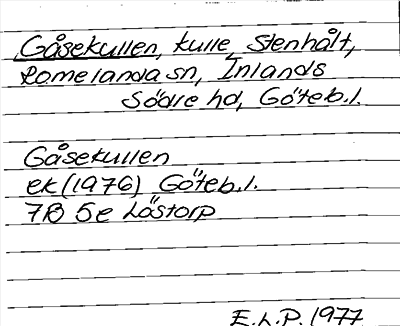 Gåsekullen, kulle, Stenhålt,
Romelanda sn, Inlands
Södre hd, Göteb.l.
Gåsekullen
ek (1976) Göteb.l.
7B 5e Löstorp
E.L.P. 1977